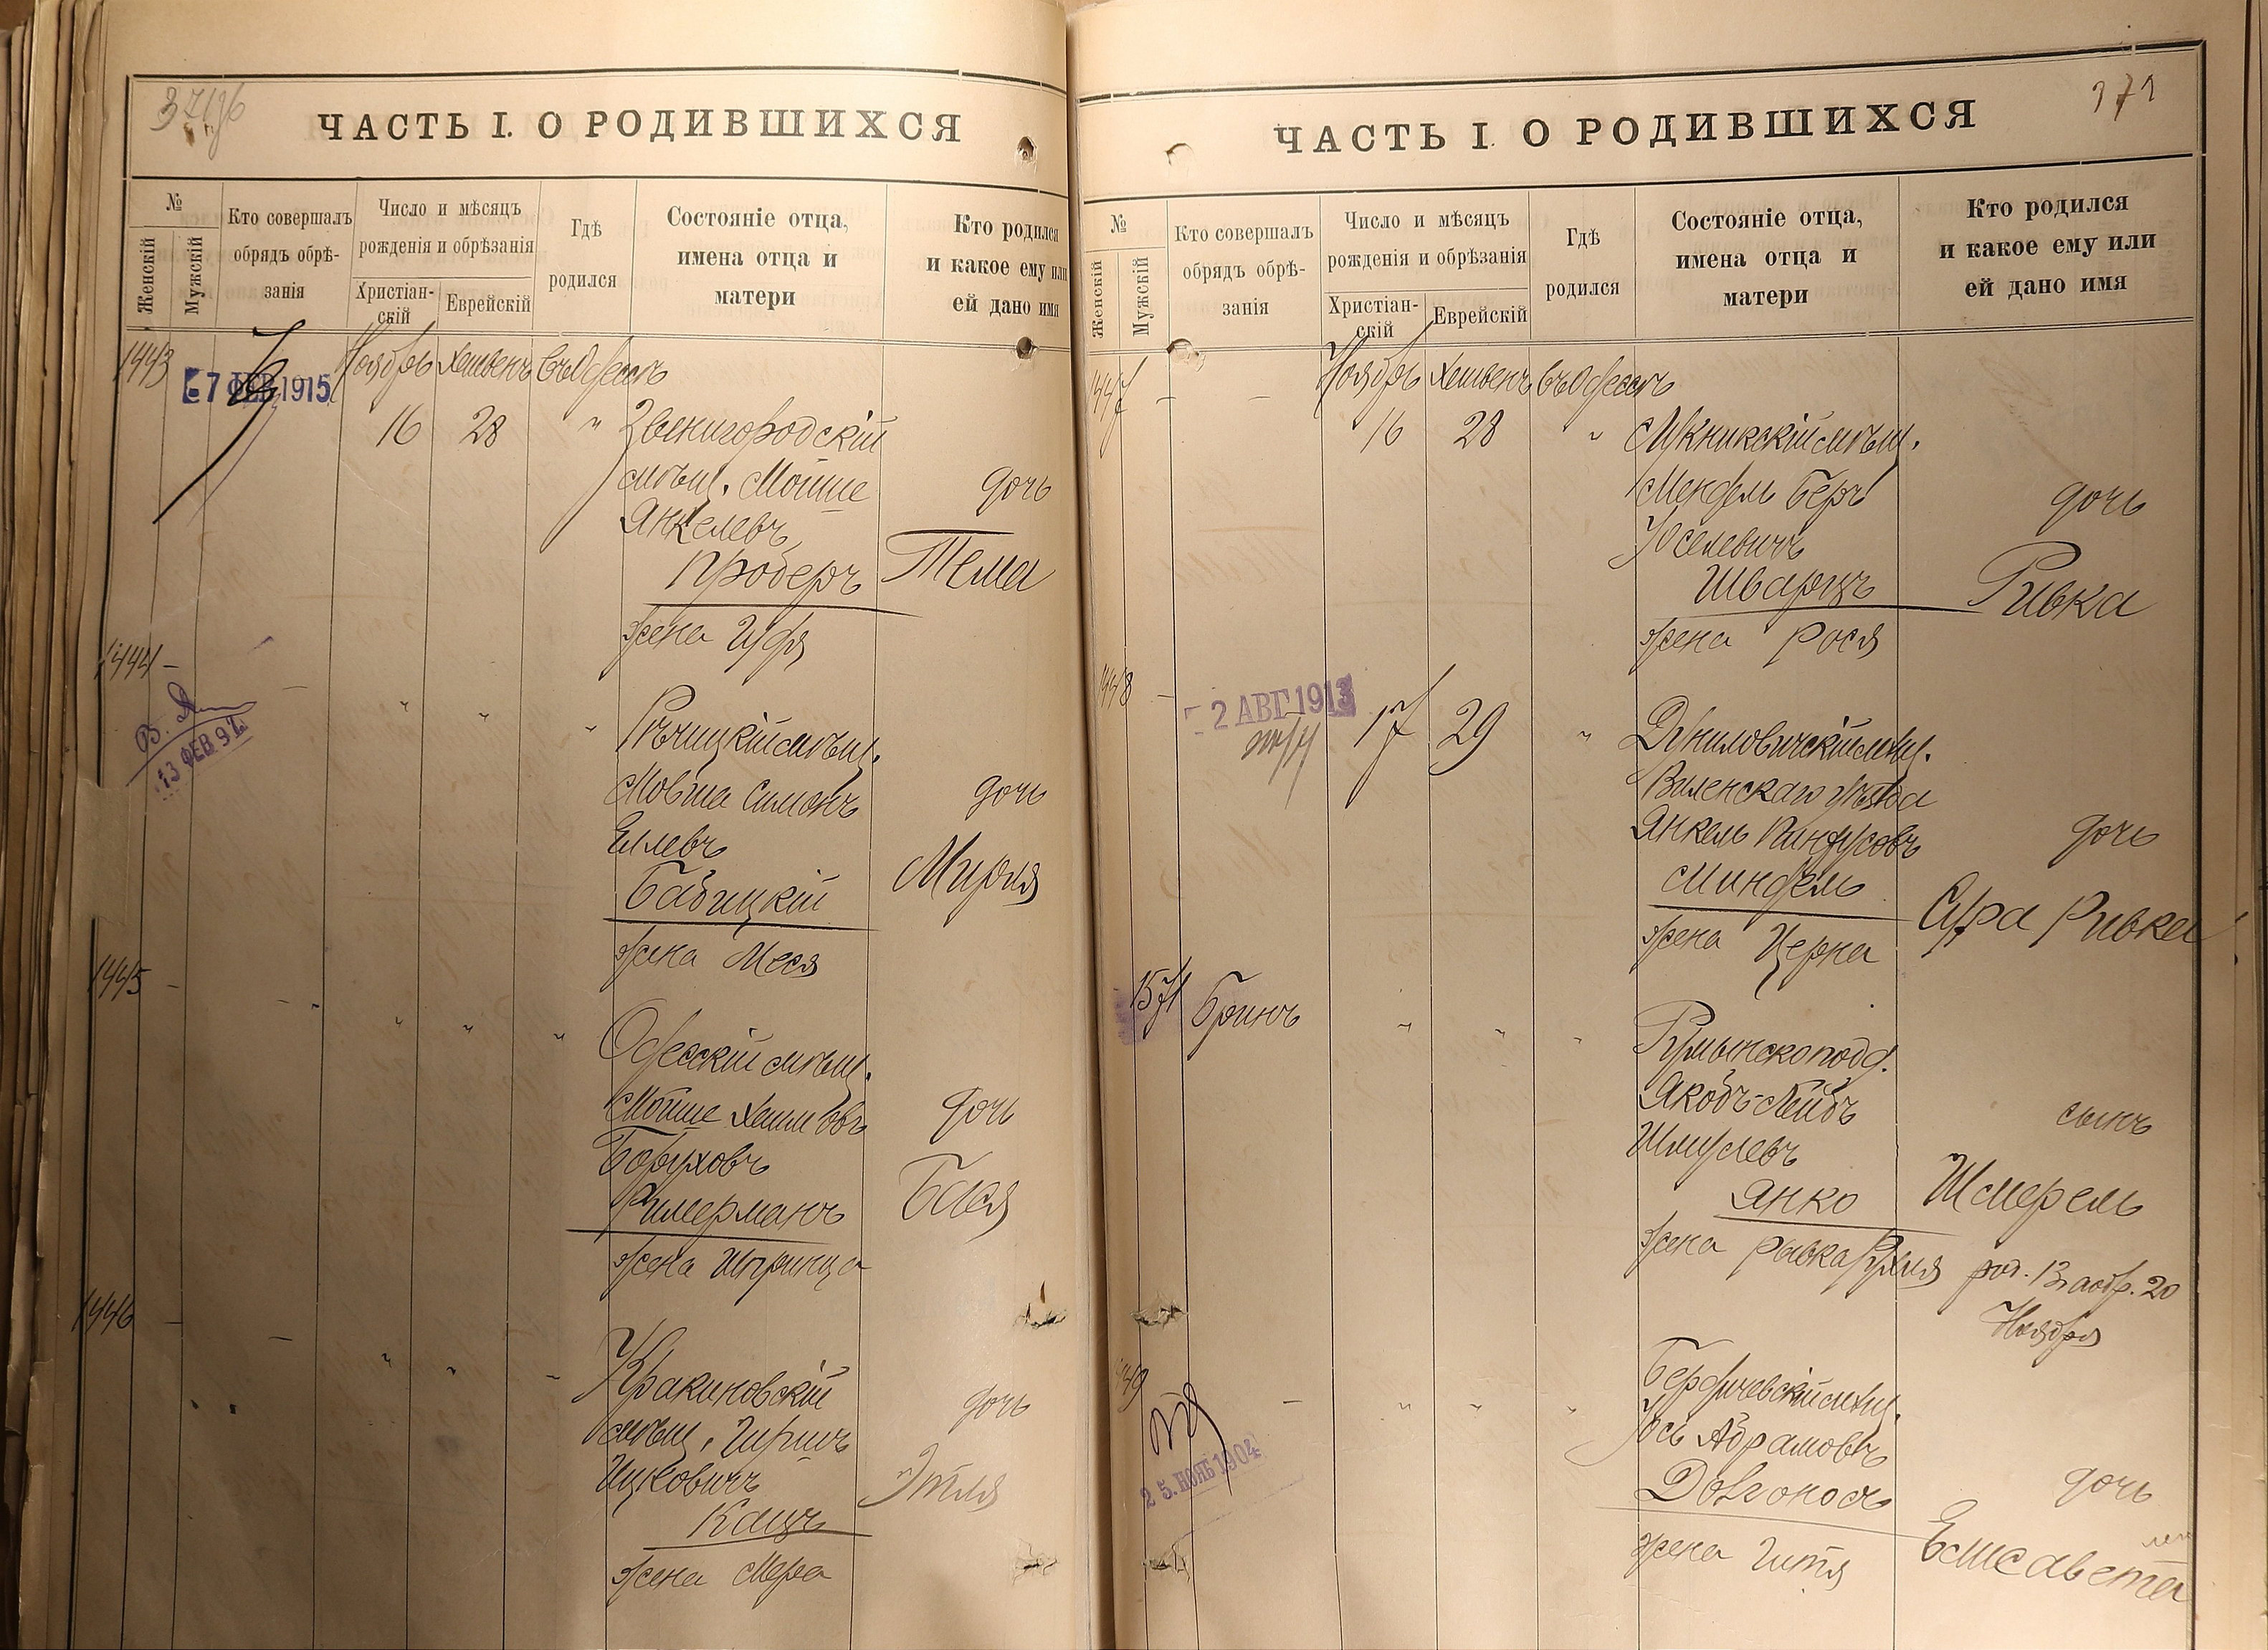 ЧАСТЬ I. О РОДИВШИХСЯ
№
Женскій
Мужскій
Кто совершалъ
обрядъ обрѣ-
занія
Число и мѣсяцъ
рожденія и обрѣзанія
Христіан-
скій
Еврейскій
Гдѣ
родился
Состояніе отца,
имена отца и
матери
Кто родился
и какое ему или
ей дано имя
1443
7 ФЕВ 1915
Ноябрь Хешвенъ въ Одессѣ
16 28 " Звенигородскій
мѣщ. Мойше дочь
Янкелевъ
Проберъ Тема
жена
1444 -
13 ФЕВ
" " " Рѣчицкій мѣщ.
Мовша Симонъ дочь
Еллевъ
Бабицкій
жена Меся
1445 - - " " "
Одесскій мѣщ.
Мойше дочь
Боруховъ
Бася
жена Шпринца
1446 - - " " "
мѣщ. Гиршъ дочь
Ицковичъ Этля
Кацъ
жена Мера
171
ЧАСТЬ I. О РОДИВШИХСЯ
№
Женскій
Мужскій
Кто совершалъ
обрядъ обрѣ-
занія
Число и мѣсяцъ
рожденія и обрѣзанія
Христіан-
скій
Еврейскій
Гдѣ
родился
Состояніе отца,
имена отца и
матери
Кто родился
и какое ему или
ей дано имя
1447 - - Ноябрь Хешвенъ въ Одессѣ
16 28 " мѣщ.
Мендель Беръ дочь
Іоселевичъ
Шварцъ Ривка
жена Рося
1448 -
2 АВГ 1913
17 29 " Дуниловичскій мѣщ.
Виленскаго уѣзда
Янкель Пинхусовъ дочь
Миндель
Сура Ривка
жена Церна
1571 Бринъ " " "
Румынскопод.
Якобъ-Лейбъ сынъ
Шмулевъ
Янко Шмерель
жена Ривка Рухля род. 13, а обр. 20
Ноября
1449 - " " "
25. НОЯБ 1904
Бердичевскій мѣщ.
Іось Абрамовъ
Довгоносъ дочь
жена Гитя Елисавета